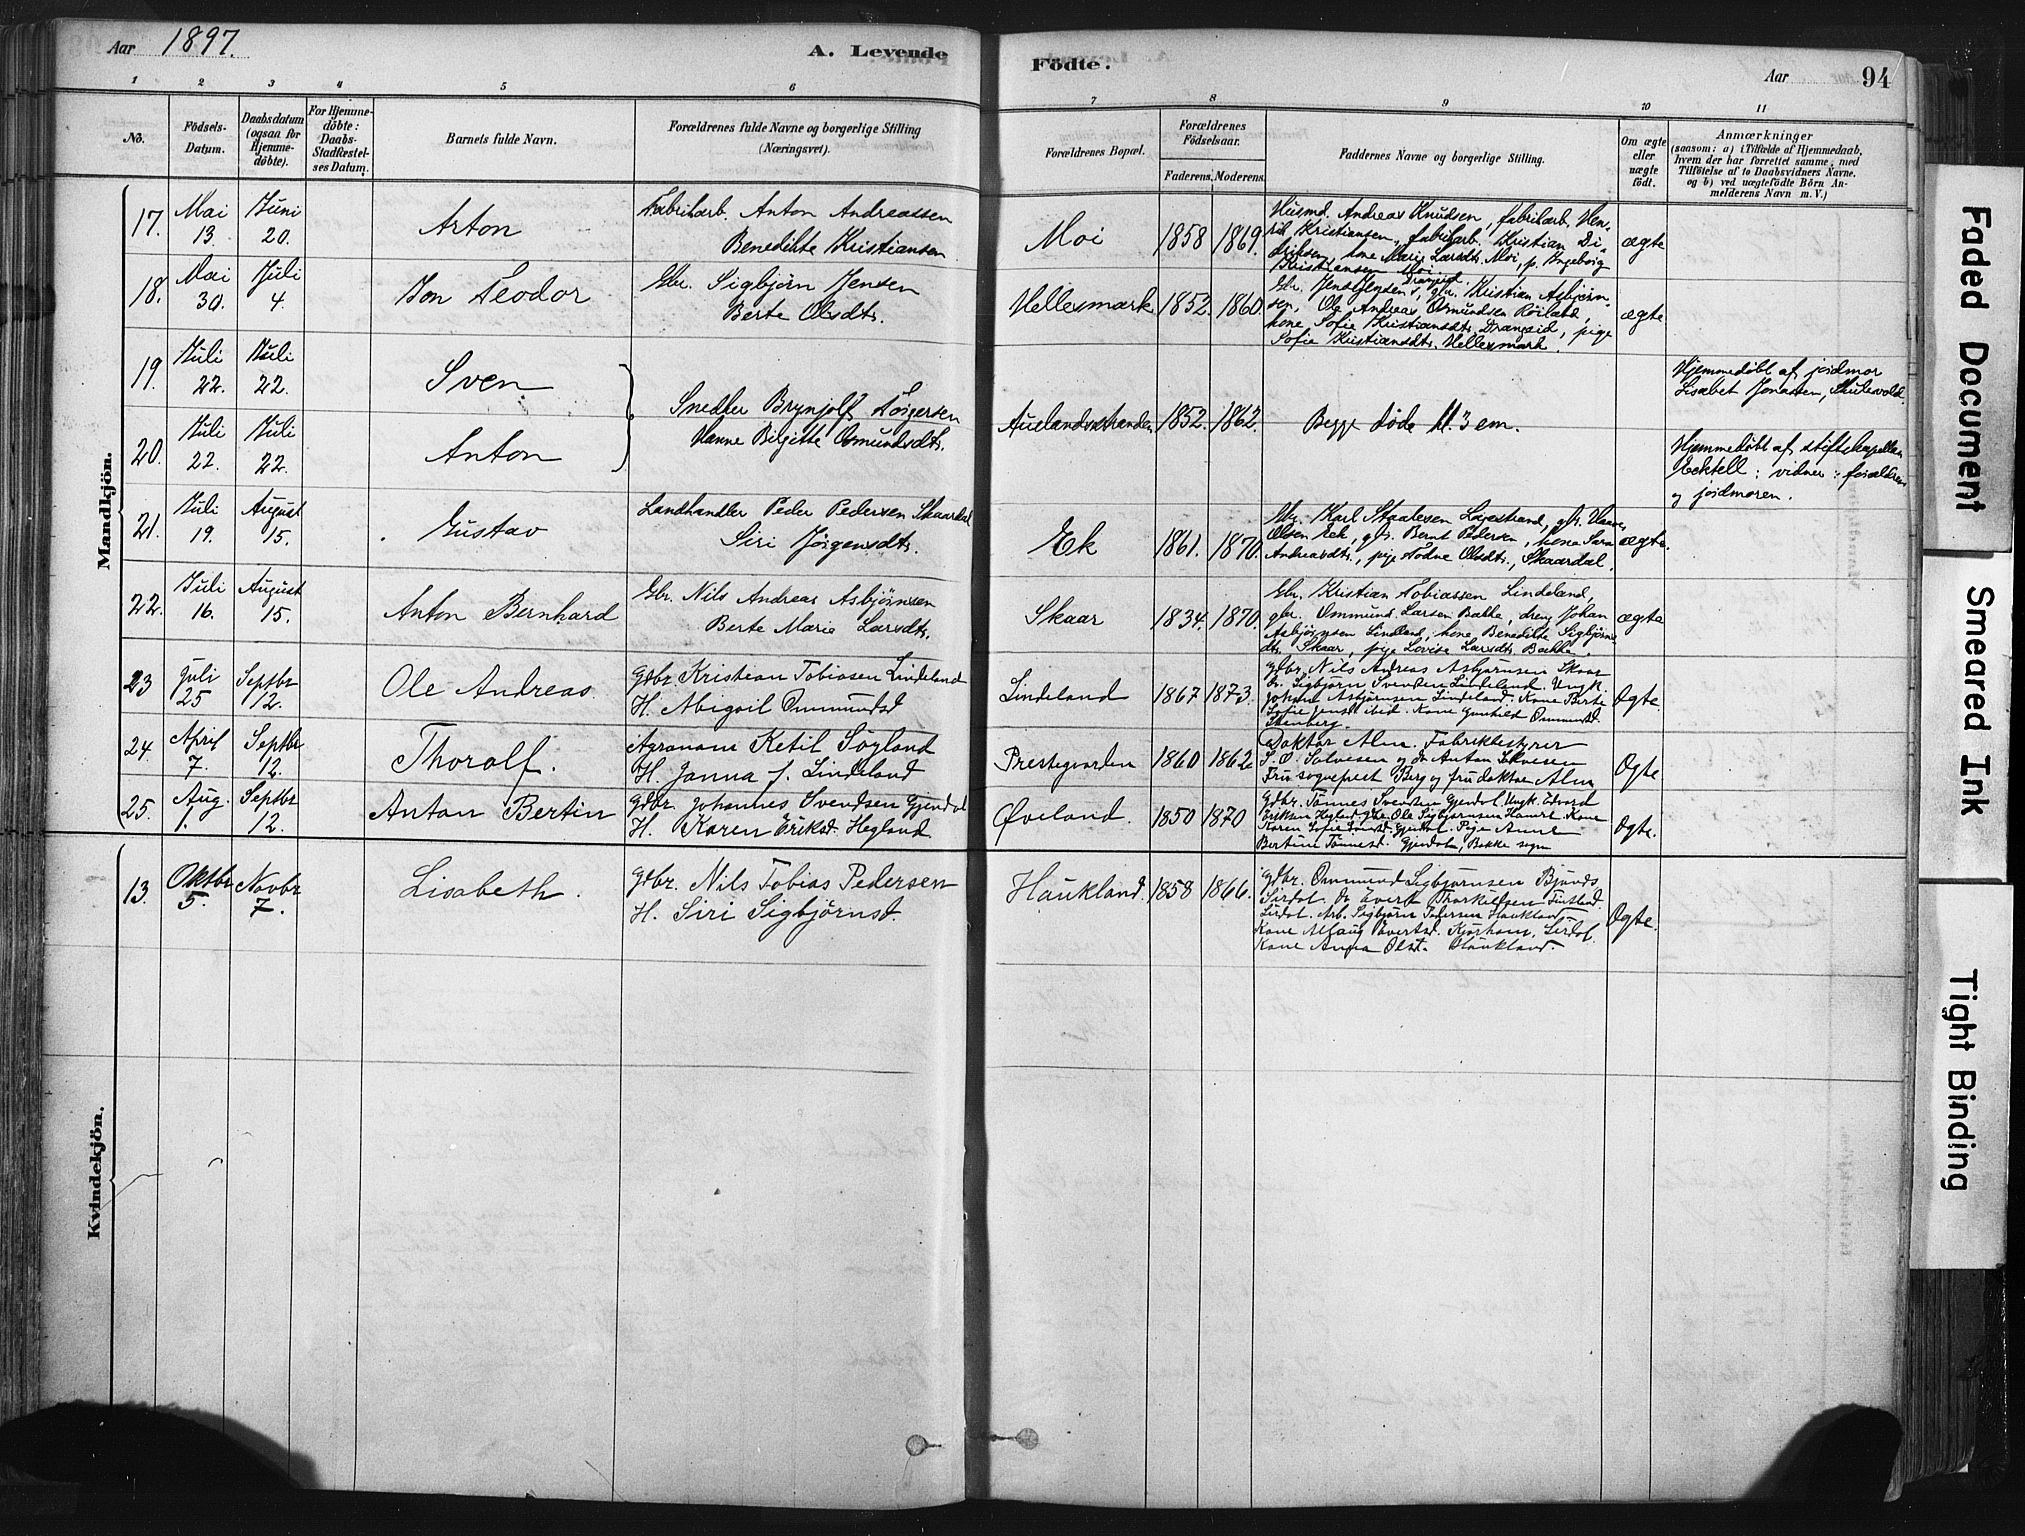 Aar 1897.
A. Levende
Födte.
Aar
94
1 2 3 4 5 6 7 8 9 10 11
No.
Födsels-
Datum.
Daabsdatum
(ogsaa for
Hjemme-
döbte).
For Hjemme-
döbte:
Daabs-
Stadfæstel-
ses Datum.
Barnets fulde Navn.
Forældrenes fulde Navne og borgerlige Stilling
(Næringsvei).
Forældrenes Bopæl.
Forældrenes
Födselsaar.
Faderens. Moderens.
Faddernes Navne og borgerlige Stilling.
Om ægte
eller
uægte
födt.
Anmærkninger
(saasom: a) i Tilfælde af Hjemmedaab,
hvem der har forrettet samme, med
Tilföielse af to Daabsvidners Navne.
og b) ved uægtefödte Börn An-
melderens Navn m. V.)
Mandkjön.
17. Mai
13.
Juni
20.
Anton
Fabrikarb. Anton Andreassen
Benedikte Kristiansen
Moi
1858 1869.
Husmd. Andreas Knudsen, fabrikarb. Hen-
rik Kristiansen, fabrikarb. Kristian Di-
driksen, kone Marie Larsdtr. Moi, p. Ingeborg
Kristiansen Moi.
ægte
18. Mai
30.
Juli
4.
Jon Teodor
Gbr. Sigbjörn Jensen
Berte Olsdtr.
Hellesmark
1852. 1860.
Drangsid
Kristian Asbjörn-
sen, Ole Andreas Osmundsen Röiland,
kone Sofie Kristiansdtr. Drangsid, pige
Sofie Kristiansdtr. Hellesmark.
ægte
19. Juli
22.
Juli
22.
Sven
Snedker Brynjolf Törgersen
Hanne Birgitte Osmundsdtr.
Auelandsstranden
1852. 1862.
Begge døde kl. 3 em.
Hjemmedøbt af jordmor
Lisabet Jonassen, Skulevold.
20. Juli
22.
Juli
22.
Anton
Hjemmedøbt af stiftskapellan
vidner: forældrene
og jordmoren.
21. Juli
19.
August
15.
Gustav
Landhandler Peder Pedersen Skaardal
Siri Jörgensdtr.
Ek
1861. 1870.
Gbr. Karl Staalesen Logestrand, gbr.
Olsen Eek, gbr. Bernt Pedersen, kone Sara
Andreasdtr., pige Todne Olsdtr., Skaardal.
ægte.
22. Juli
16.
August
15.
Anton Bernhard
Gbr. Nils Andreas Asbjörnsen
Berte Marie Larsdtr.
Skaar
1834. 1870.
Gbr. Kristian Tobiassen Lindeland,
gbr. Ommund Larsen Bakke, dreng Johan
Asbjörnsen Lindland, kone Benedikte Sigbjörns-
dtr. Skaar, pige Lovise Larsdtr. Bakke.
ægte
23 Juli
25
Septbr
12.
Ole Andreas
Gdbr. Kristian Tobiasen Lindeland
H. Abigail Ommundsd
Lindeland
1867 1873.
Gdbr. Nils Andreas Asbjørnsen Skaar
do. Sigbjørn Svendsen Lindeland. Ungk.
Johan Asbjørnsen Lindeland. Kone Berte
Sofie Jensd. ibid. Kone Gunhild Ommundsd.
Stenberg.
Ægte.
24. April
7.
Septbr
12.
Thorolf.
Agronom Ketil Søyland
H. Janna f. Lindeland
Prestegaarden
1860 1862
Doktor Alm. Fabrikbestyrer
S. O. Salvesen og do Anton Salvesen
Fru sogneprest Berg og fru doktor Alm
Ægte
25. Aug.
1.
Septbr
12.
Anton Bertin
Gdbr. Johannes Svendsen Gjendal
H. Karen Eriksd. Hegland
Øveland.
1850 1870
Gdbr. Tønnes Svendsen Gjendal. Ungk. Edvard
Eriksen Hegland. Gdbr Ole Sigbjørnsen Hamre. Kone
Karen Sofie Gjendal. Pige Anne
Bertine Tønnesd. Gjendalen, Bakke sogn
Ægte.
Kvindekjön.
13. Oktbr
5.
Novbr
7.
Lisabeth.
Gdbr. Nils Tobias Pedersen
H. Siri Sigbjörnsd.
Haukland.
1858 1866.
Gdbr. Ommund Sigbjørnsen Bjunds
Sirdal. do Evert Thorkildsen
Sirdal. Arb. Sigbjørn Pedersen Haukland
Kone Evertsd. Kjørhom, Sirdal.
Kone Anna Olsd. Haukland.
Ægte.
Faded Document
Smeared Ink
Tight Binding